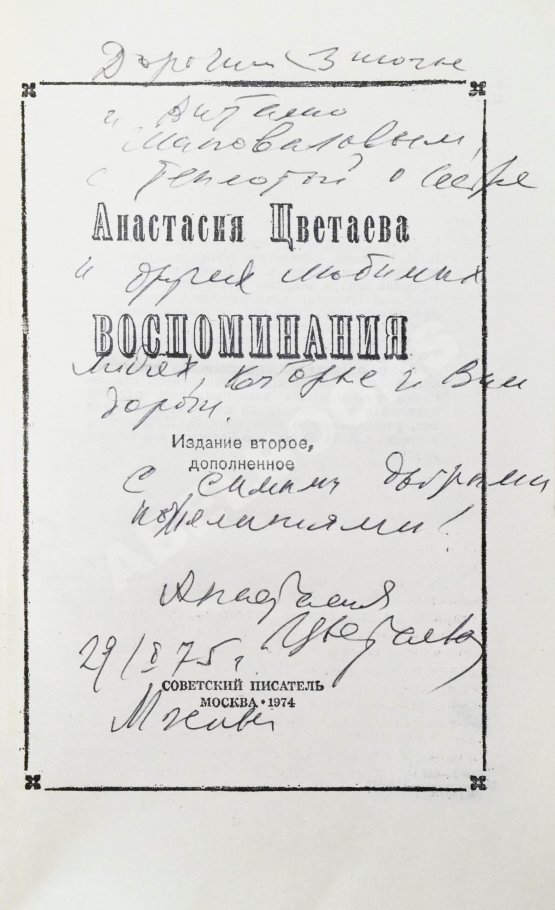 Дорогим Зиночке
и Виталию
Шаповаловым,
с теплотой о Сестре
Анастасия Цветаева
и других любимых
ВОСПОМИНАНИЯ
людях, которые и Вам
дороги.
Издание второе,
дополненное
С самыми добрыми
пожеланиями!
Анастасия
Цветаева
29/X 75 г.
СОВЕТСКИЙ ПИСАТЕЛЬ
МОСКВА • 1974
Москва